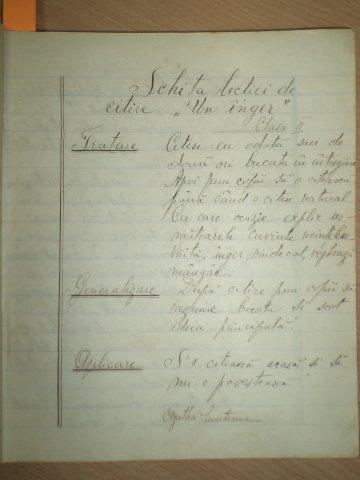 Schița lecției de
citire „Un înger"
Clasa II
Tratare Citesc eu odată sau de
două ori bucata în întregime
Apoi pun copiii să o citească
până când o citesc natural
Cu care ocazie explic ur-
mătoarele cuvinte neînțelese
Vaită, înger, vindecat, veghează
mângâe.
Generalizare După citire pun copiii să
bucata și scot
ideia principală".
Aplicare S'o citească acasă și să
mi-o povestească
Agatha